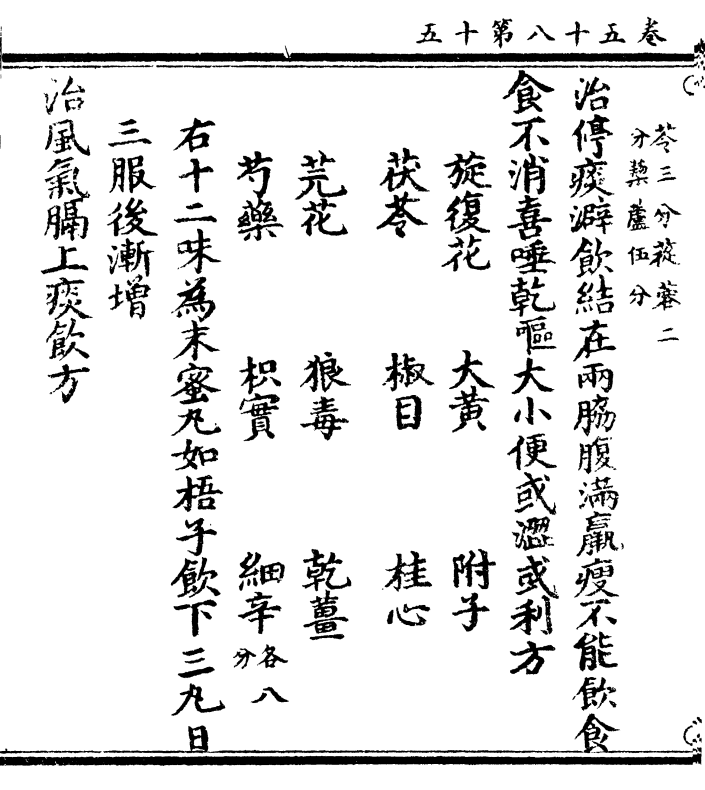 卷五十八第十五
苓三分蓯蓉二
分藜蘆伍分
治停痰澼飲結在兩脇腹滿羸瘦不能飲食
食不消喜唾乾嘔大小便或澀或利方
旋復花 大黄 附子
茯苓 椒目 桂心
芫花 狼毒 乾薑
芍藥 枳實 細辛各八分
右十二味為末蜜丸如梧子飲下三丸日
三服後漸增
治風氣膈上痰飲方